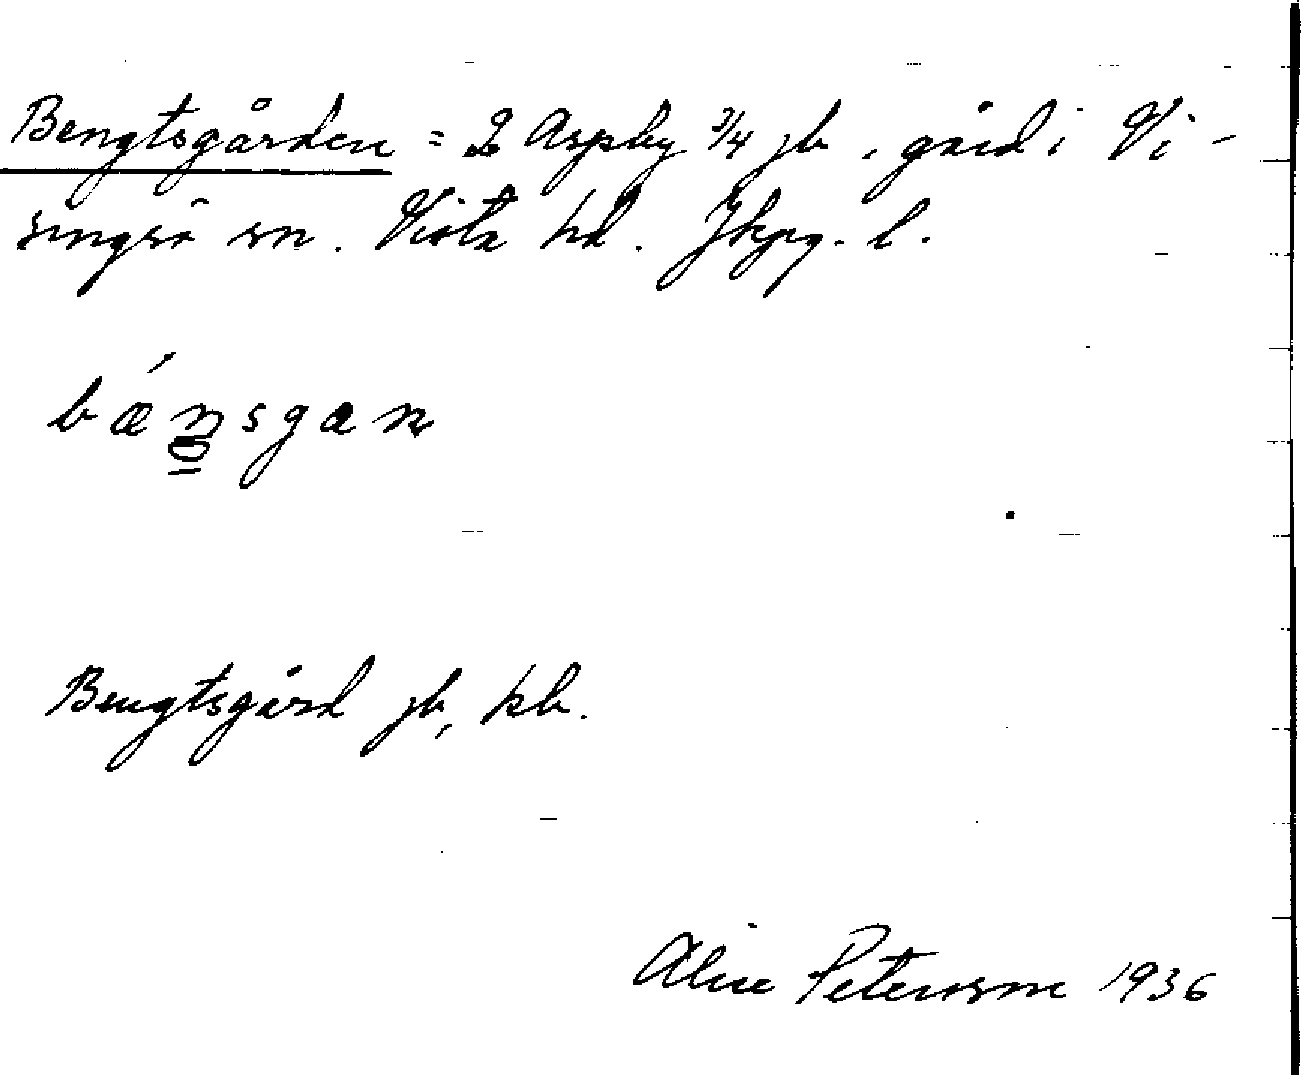 Bengtsgården = 2 Aspby 3/4 jb, gård i Vi-
singsö sn. Vista hd. Jkpg. l.
bǽnsgan
Bengtsgård jb, kb.
Alice Petersson 1936